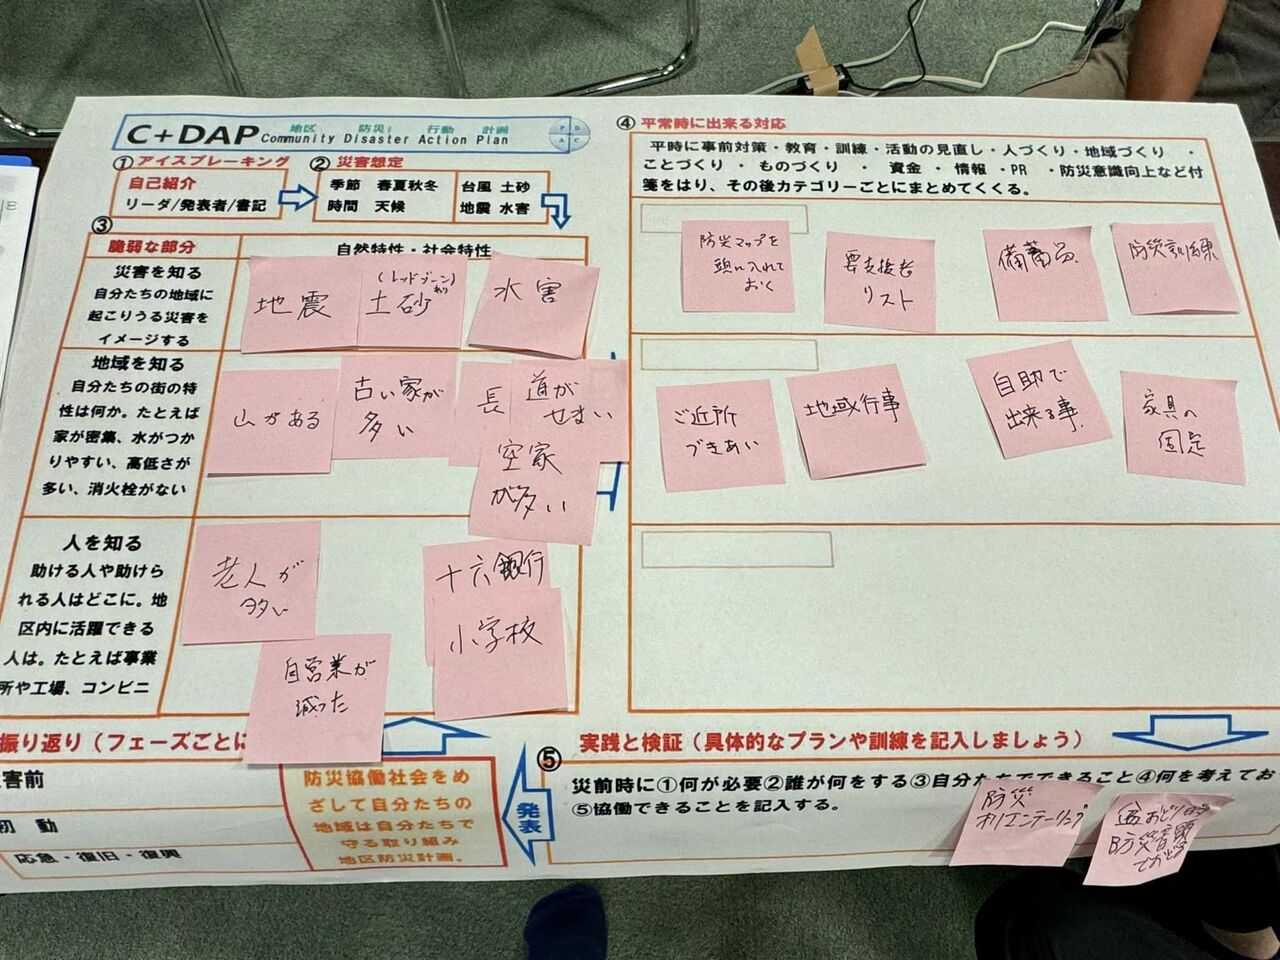 C+DAP
地区 防災 行動 計画
Community Disaster Action Plan
P D
A C
①アイスブレーキング
自己紹介
リーダ/発表者/書記
②災害想定
季節 春夏秋冬
時間 天候
台風 土砂
地震 水害
③
脆弱な部分
自然特性・社会特性
災害を知る
自分たちの地域に
起こりうる災害を
イメージする
地震
(レッドゾーン)
土砂
水害
地域を知る
自分たちの街の特
性は何か。たとえば
家が密集、水がつか
りやすい、高低さが
多い、消火栓がない
山がある
古い家が
多い
長
道が
せまい
空家
が多い
人を知る
助ける人や助けら
れる人はどこに。地
区内に活躍できる
人は。たとえば事業
所や工場、コンビニ
老人が
多い
自営業が
減った
十六銀行
小学校
④平常時に出来る対応
平時に事前対策・教育・訓練・活動の見直し・人づくり・地域づくり ・
ことづくり ・ ものづくり ・ 資金 ・ 情報 ・PR ・防災意識向上など付
箋をはり、その後カテゴリーごとにまとめてくくる。
防災マップを
頭に入れて
おく
要支援者
リスト
防災訓練
ご近所
づきあい
地域行事
自助で
出来る事
家具の
固定
振り返り(フェーズごとに
害前
初 動
応急・復旧・復興
防災協働社会をめ
ざして自分たちの
地域は自分たちで
守る取り組み
地区防災計画。
発表
⑤ 実践と検証(具体的なプランや訓練を記入しましょう)
災前時に①何が必要②誰が何をする③自分たちでできること④何を考えてお
⑤協働できることを記入する。
防災
オリエンテーリング
盆おどり時
防災音頭